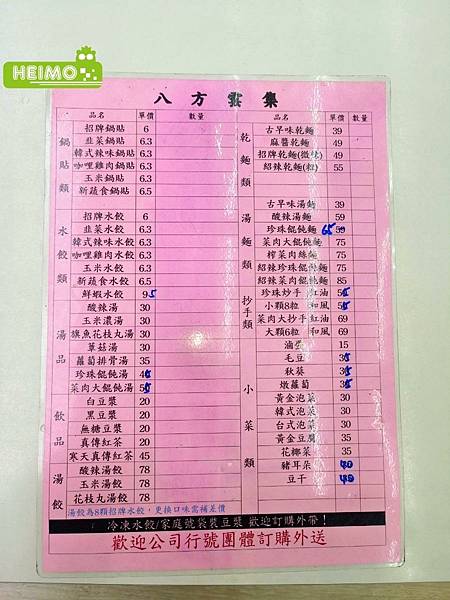 HEIMO
八方雲集
品名 單價 數量
鍋貼類
招牌鍋貼 6
韭菜鍋貼 6.3
韓式辣味鍋貼 6.3
咖哩雞肉鍋貼 6.3
玉米鍋貼 6.3
新蔬食鍋貼 6.5
水餃類
招牌水餃 6
韭菜水餃 6.3
韓式辣味水餃 6.3
咖哩雞肉水餃 6.3
玉米水餃 6.3
新蔬食水餃 6.5
鮮蝦水餃
湯品
酸辣湯 30
玉米濃湯 30
旗魚花枝丸湯 30
蕈菇湯 30
蘿蔔排骨湯 35
珍珠餛飩湯 45
菜肉大餛飩湯 55
飲品
白豆漿 20
黑豆漿 20
無糖豆漿 20
真傳紅茶 20
寒天真傳紅茶 45
湯餃
酸辣湯餃 78
玉米湯餃 78
花枝丸湯餃 78
湯餃為8顆招牌水餃，更換口味需補差價
品名 單價 數量
乾麵類
古早味乾麵 39
麻醬乾麵 49
招牌乾麵(微辣) 49
紹辣乾麵(粗) 55
湯麵類
古早味湯麵 39
酸辣湯麵 59
珍珠餛飩麵 65
菜肉大餛飩麵 75
榨菜肉絲麵 75
紹辣珍珠餛飩麵 75
紹辣榨菜肉絲麵 85
抄手類
珍珠抄手 紅油 55
小顆8粒 和風 55
菜肉大抄手 紅油 69
大顆6粒 和風 69
小菜類
滷蛋 15
毛豆 35
秋葵 35
燉蘿蔔 35
黃金泡菜 35
韓式泡菜 30
台式泡菜 30
黃金豆腐 35
花椰菜 35
豬耳朵 40
豆干 40
冷凍水餃/家庭號袋裝豆漿 歡迎訂購外帶！
歡迎公司行號團體訂購外送